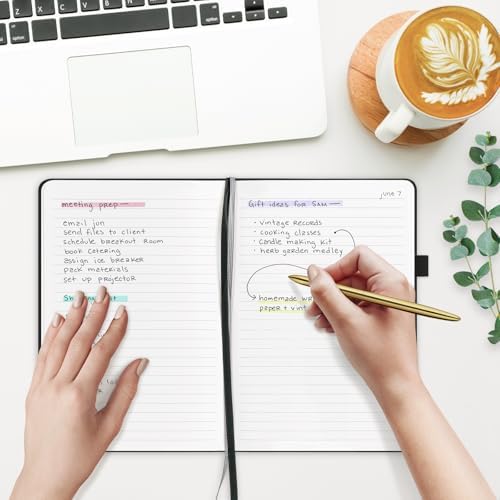 meeting prep
email jon
send files to client
schedule breakout room
book catering
assign ice breaker
pack materials
set up projector
june 7
Gift ideas for Sam
• vintage records
• cooking classes
• candle making kit
• herb garden medley
homemade
paper + vint